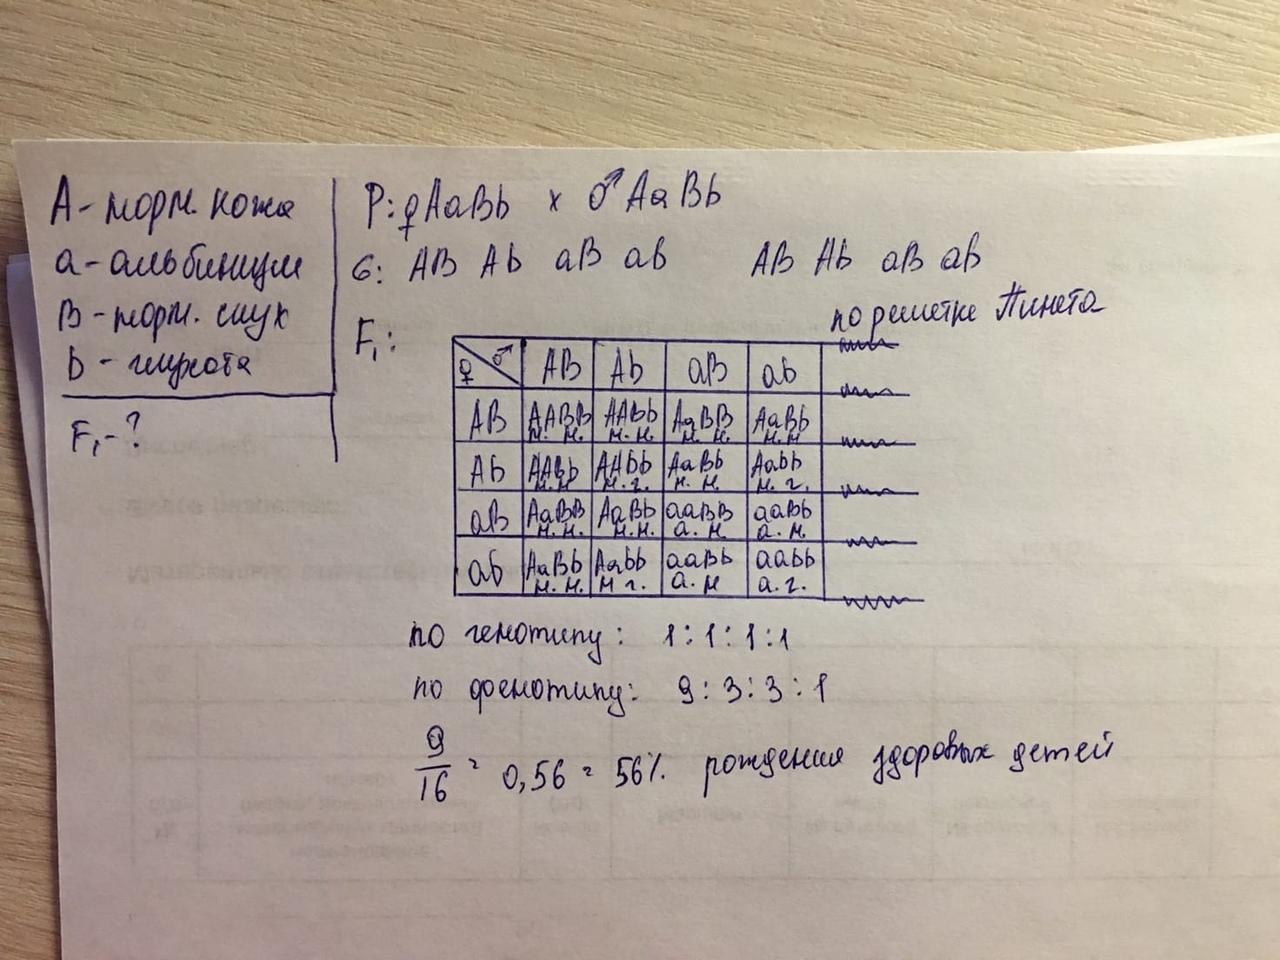 А - норм. кожа
а - альбинизм
В - норм. слух
b - глухота
F₁ - ?
P: ♀ AaBb x ♂ AaBb
G: AB Ab aB ab AB Ab aB ab
по решетке Пинета
F₁:
♀ ♂ AB Ab aB ab
AB AABB AABb AaBB AaBb
н. н. н. н. н. н. н. н
Ab AABb AAbb AaBb Aabb
н. н н. г. н. н н. г.
aB AaBB AaBb aaBB aaBb
н. н. н. н. а. н а. н.
ab AaBb Aabb aaBb aabb
н. н. н г. а. н а. г.
по генотипу: 1 : 1 : 1 : 1
по фенотипу: 9 : 3 : 3 : 1
9/16 = 0,56 = 56% рождения здоровых детей